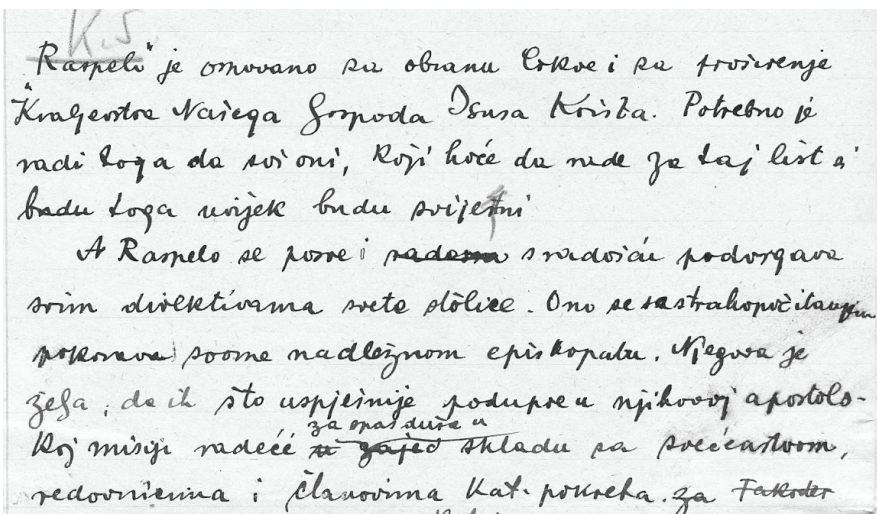 K.S
„Raspelo" je osnovano za obranu Crkve i za proširenje
Kraljevstva Našega Gospoda Isusa Krista. Potrebno je
radi toga da svi oni, koji hoće da rade za taj list i
budu toga uvijek budu svijesni
A Raspelo se posve i radosna s radošću podvrgava
svim direktivama svete stolice. Ono se sa strahopočitanjem
pokorava svome nadležnom episkopatu. Njegova je
želja, da ih što uspješnije podupre u njihovoj apostols-
za spas duša u
koj misiji radeći u zajed skladu sa svećenstvom,
redovnicima i članovima Kat. pokreta. za Također